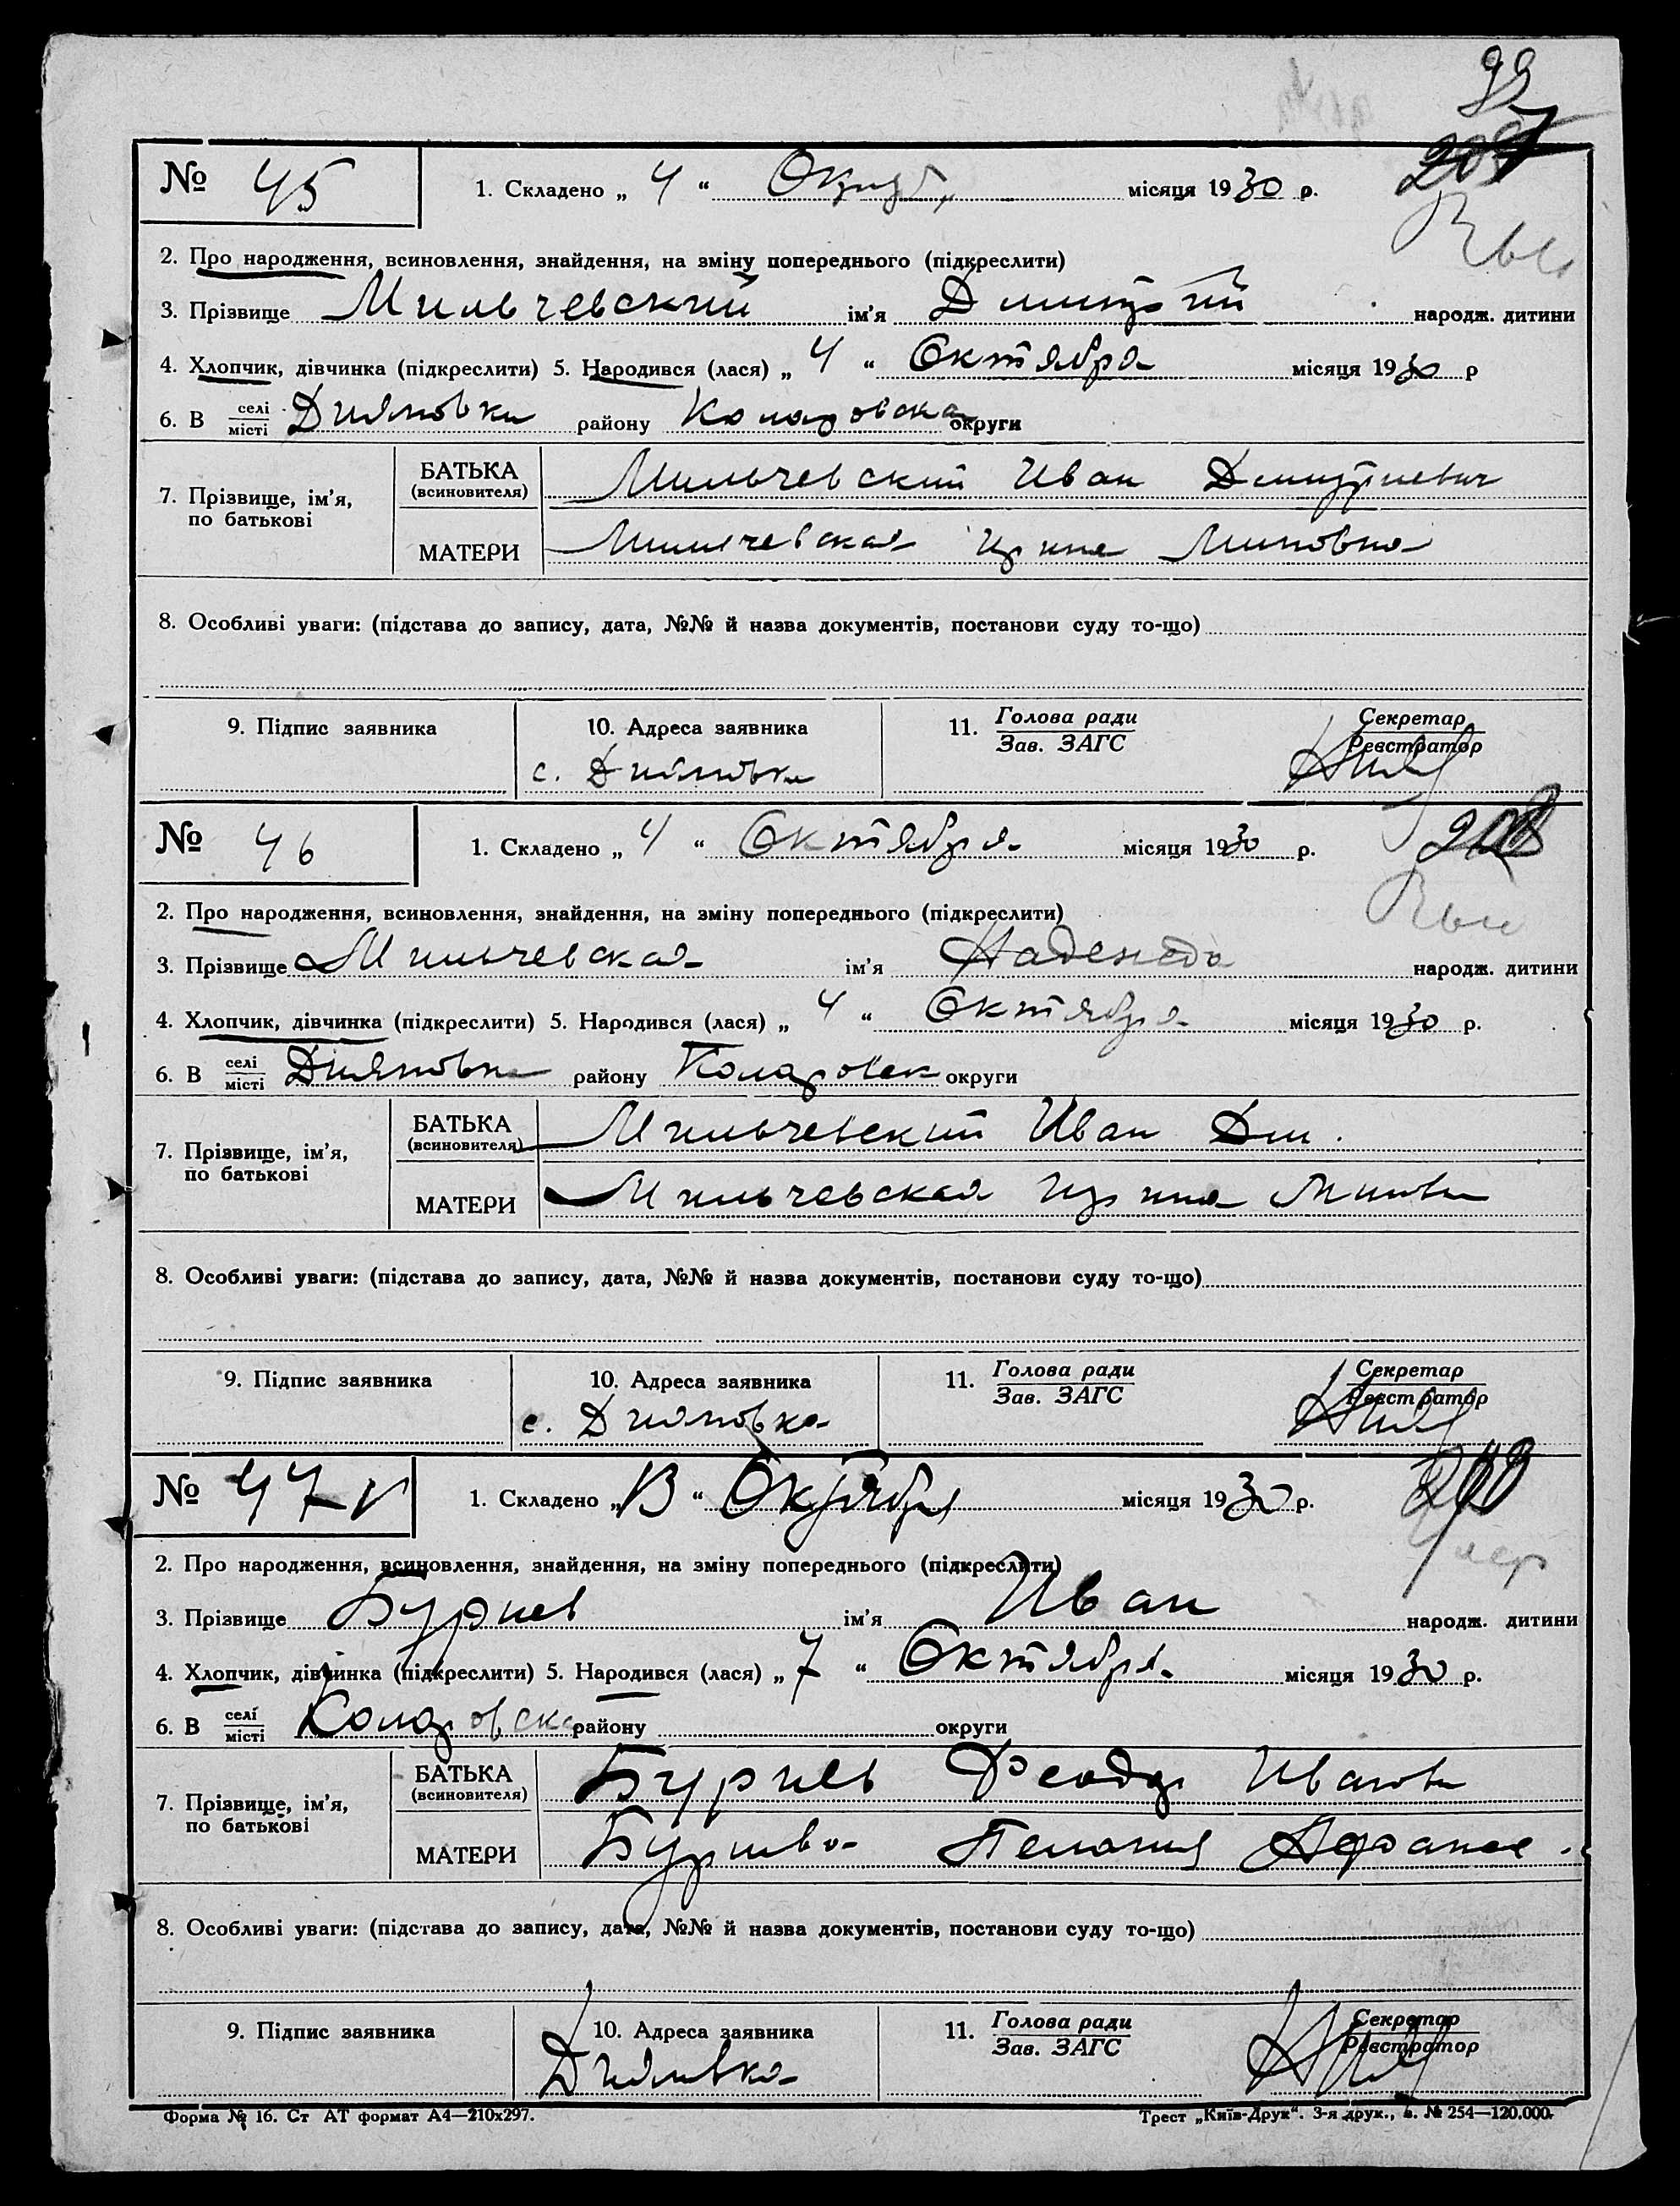 99
№ 45 1. Складено „ 4 “ Октяб місяця 1930 р.
2. Про народження, всиновлення, знайдення, на зміну попереднього (підкреслити)
3. Прізвище Мильчевский ім’я Димитрий народж. дитини
4. Хлопчик, дівчинка (підкреслити) 5. Народився (лася) „ 4 “ Октября місяця 1930 р
6. В селі місті Дияновки району округи
7. Прізвище, ім’я, по батькові
БАТЬКА (всиновителя) Мильчевский Иван Димитриевич
МАТЕРИ Мильчевская Ирина
8. Особливі уваги: (підстава до запису, дата, №№ й назва документів, постанови суду то-що)
9. Підпис заявника 10. Адреса заявника 11. Голова ради Зав. ЗАГС Секретар Реєстратор
с. Дияновка
№ 46 1. Складено „ 4 “ Октября місяця 1930 р. 208
2. Про народження, всиновлення, знайдення, на зміну попереднього (підкреслити)
3. Прізвище Мильчевская ім’я Надежда народж. дитини
4. Хлопчик, дівчинка (підкреслити) 5. Народився (лася) „ 4 “ Октября місяця 1930 р.
6. В селі місті Дияновка району Коларовск округи
7. Прізвище, ім’я, по батькові
БАТЬКА (всиновителя) Мильчевский Иван Дм.
МАТЕРИ Мильчевская Ирина
8. Особливі уваги: (підстава до запису, дата, №№ й назва документів, постанови суду то-що)
9. Підпис заявника 10. Адреса заявника 11. Голова ради Зав. ЗАГС Секретар Реєстратор
с. Дияновка
№ 47 1. Складено „ 13 “ Октября місяця 1930 р.
2. Про народження, всиновлення, знайдення, на зміну попереднього (підкреслити)
3. Прізвище Буриев ім’я Иван народж. дитини
4. Хлопчик, дівчинка (підкреслити) 5. Народився (лася) „ 7 “ Октября місяця 1930 р.
6. В селі місті Коларовка району округи
7. Прізвище, ім’я, по батькові
БАТЬКА (всиновителя) Буриев Феодор Иванов
МАТЕРИ Буриева Пелагия Афанас.
8. Особливі уваги: (підстава до запису, дата, №№ й назва документів, постанови суду то-що)
9. Підпис заявника 10. Адреса заявника 11. Голова ради Зав. ЗАГС Секретар Реєстратор
Дияновка
Форма № 16. Ст АТ формат А4—210х297. Трест „Київ-Друк“. 3-я друк., з. № 254—120.000.